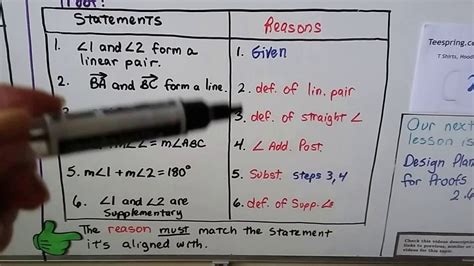 Proof:
Statements
Reasons
1. ∠1 and ∠2 form a
linear pair.
1. Given
2. BA and BC form a line.
2. def. of lin. pair
3. def. of straight ∠
m∠2 = m∠ABC
4. ∠ Add. Post.
5. m∠1 + m∠2 = 180°
5. Subst. steps 3, 4
6. ∠1 and ∠2 are
Supplementary
6. def. of Supp. ∠s
The reason must match the statement
it's aligned with.
Teespring.co
T Shirts, Hoodi
Our next
lesson is
Design Plan
for Proofs
2.